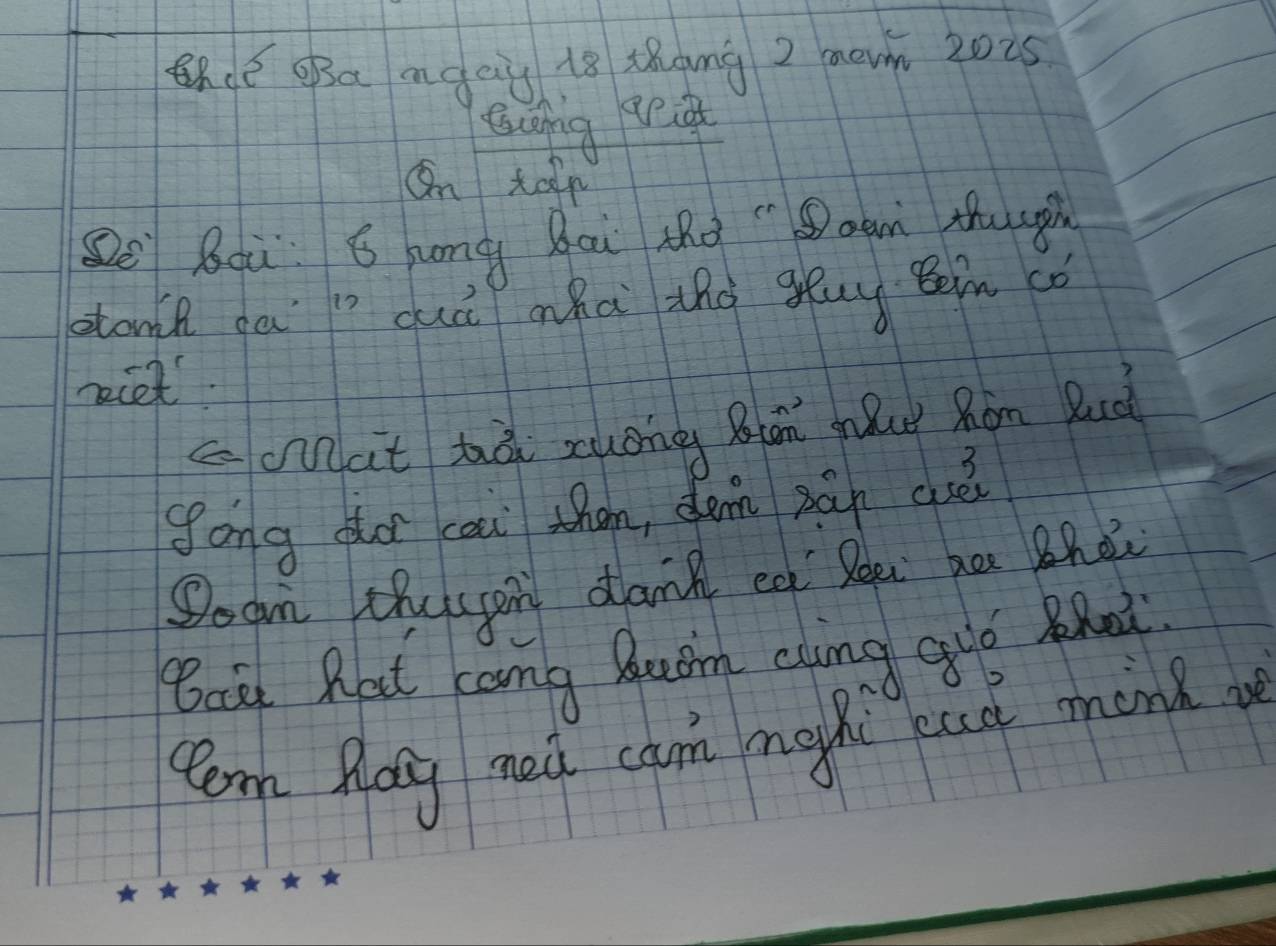 Thứ Ba ngày 18 tháng 2 năm 2025.
Tiếng Việt
Ôn tập
Đề bài: Trong bài thơ "Đoàn thuyền
đánh cá" của nhà thơ Huy Cận có
viết:
Mặt trời xuống biển như hòn lửa
Sóng đã cài then, đêm sập cửa
Đoàn thuyền đánh cá lại ra khơi
Câu hát căng buồm cùng gió khơi.
Em hãy nêu cảm nghĩ của mình về